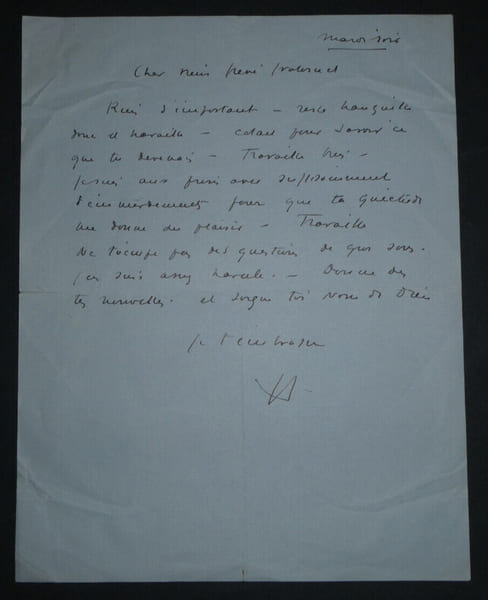 mardi soir
Cher Vieux frère fraternel
Rien d'important – reste tranquille
donc et travaille – c'était pour savoir ce
que tu devenais – Travaille bien –
je suis aux prises avec suffisamment
d'emmerdements pour que ta quiétude
me donne du plaisir – Travaille
Ne t'occupe pas des questions de gros sous.
j'en suis assez – Donne de
tes nouvelles. et soigne toi Nom de Dieu
je t'embrasse